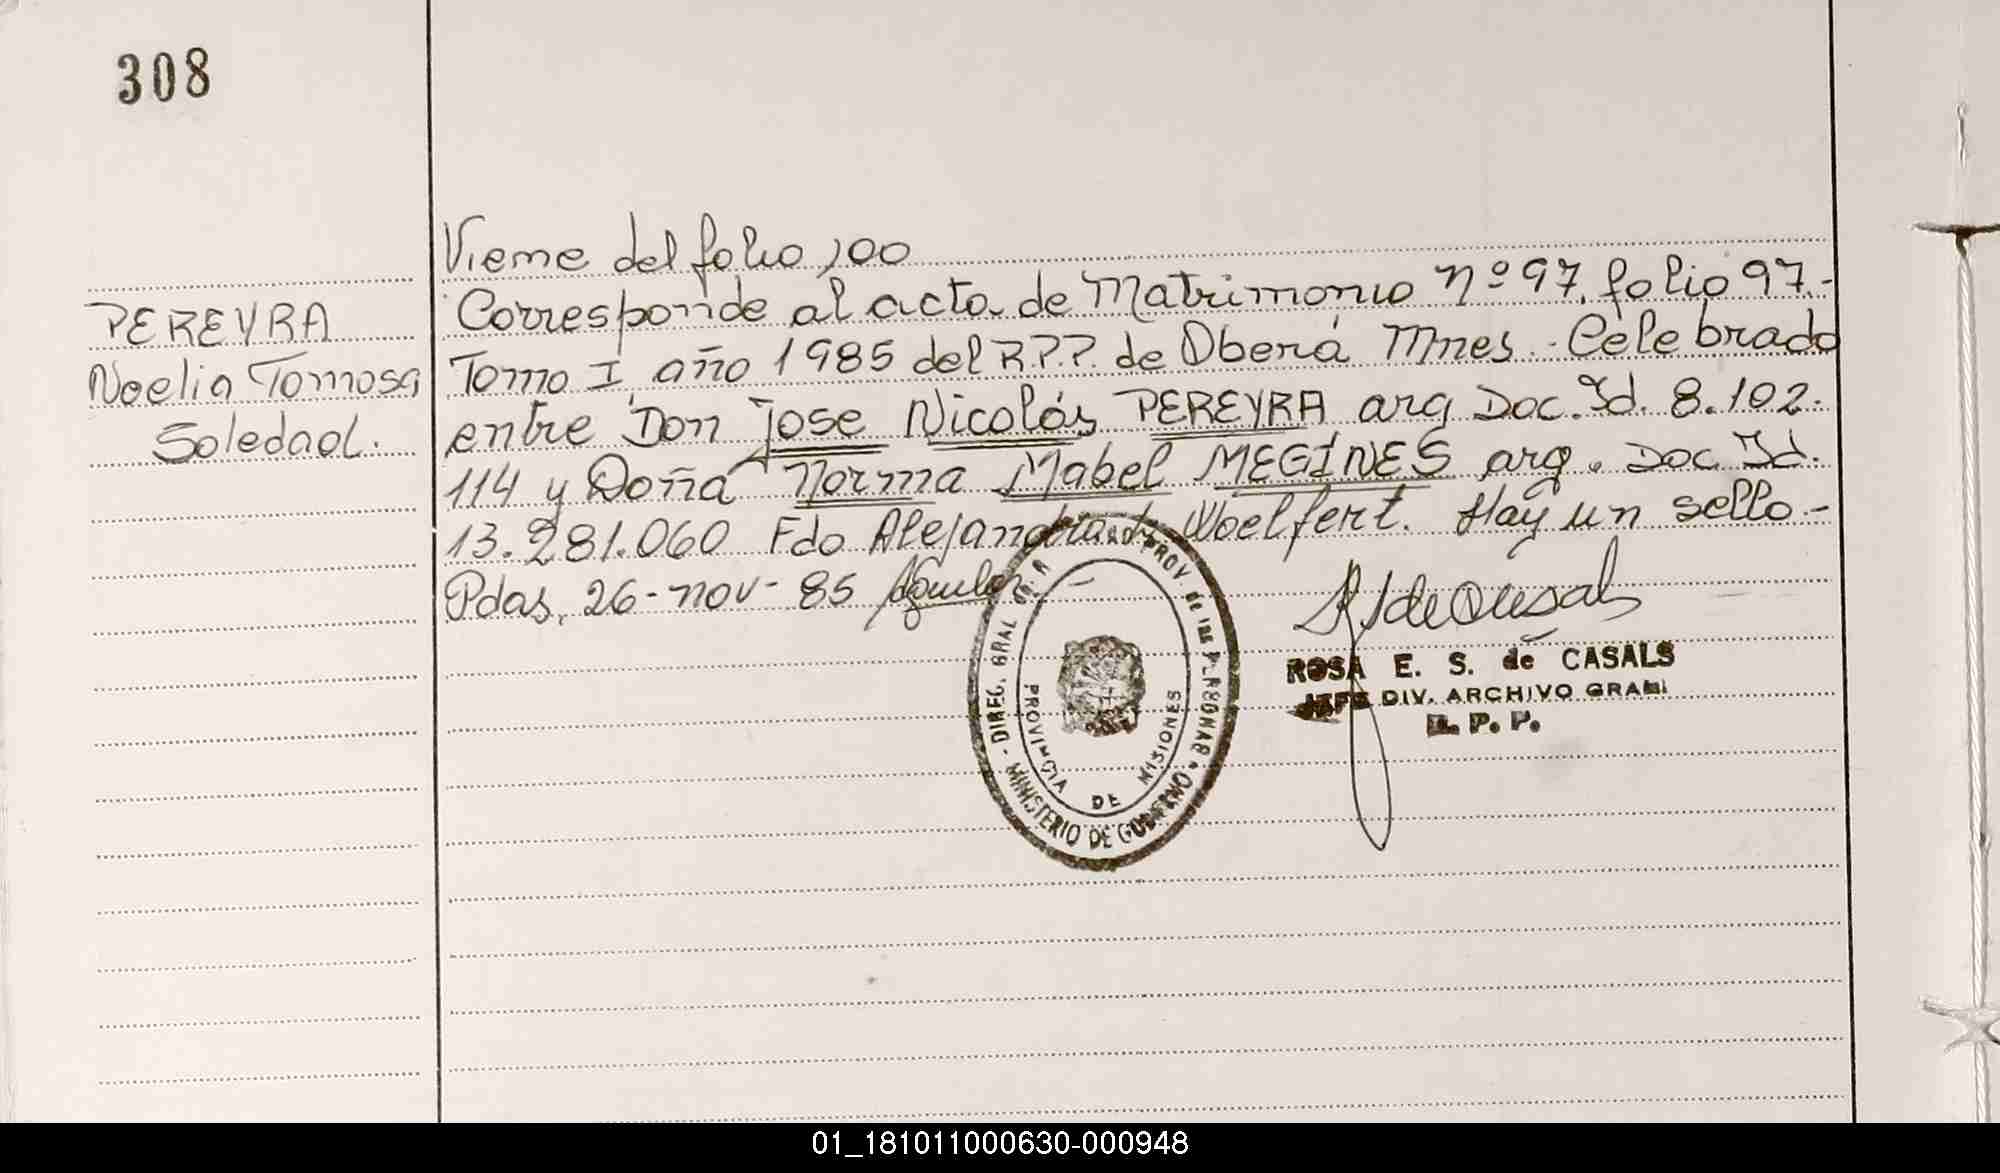 308
Viene del folio 100
PEREYRA
Noelia Tomasa
Soledad.
Corresponde al acta de Matrimonio Nº 97, folio 97.-
Tomo I, año 1985 del R.P.P. de Oberá Mnes. - Celebrado
entre Don Jose Nicolás PEREYRA arg Doc. Id. 8.102.
114 y Doña Norma Mabel MEGINES arg. Doc. Id.
13.281.060 Fdo Alejandra de Woelfert. Hay un sello.-
Pdas, 26-nov-85
DIREC. GRAL PROV. de las PERSONAS
MINISTERIO DE GOBIERNO
PROVINCIA DE MISIONES
ROSA E. S. de CASALS
JEFE DIV. ARCHIVO GRAL
R. P. P.
01_181011000630-000948